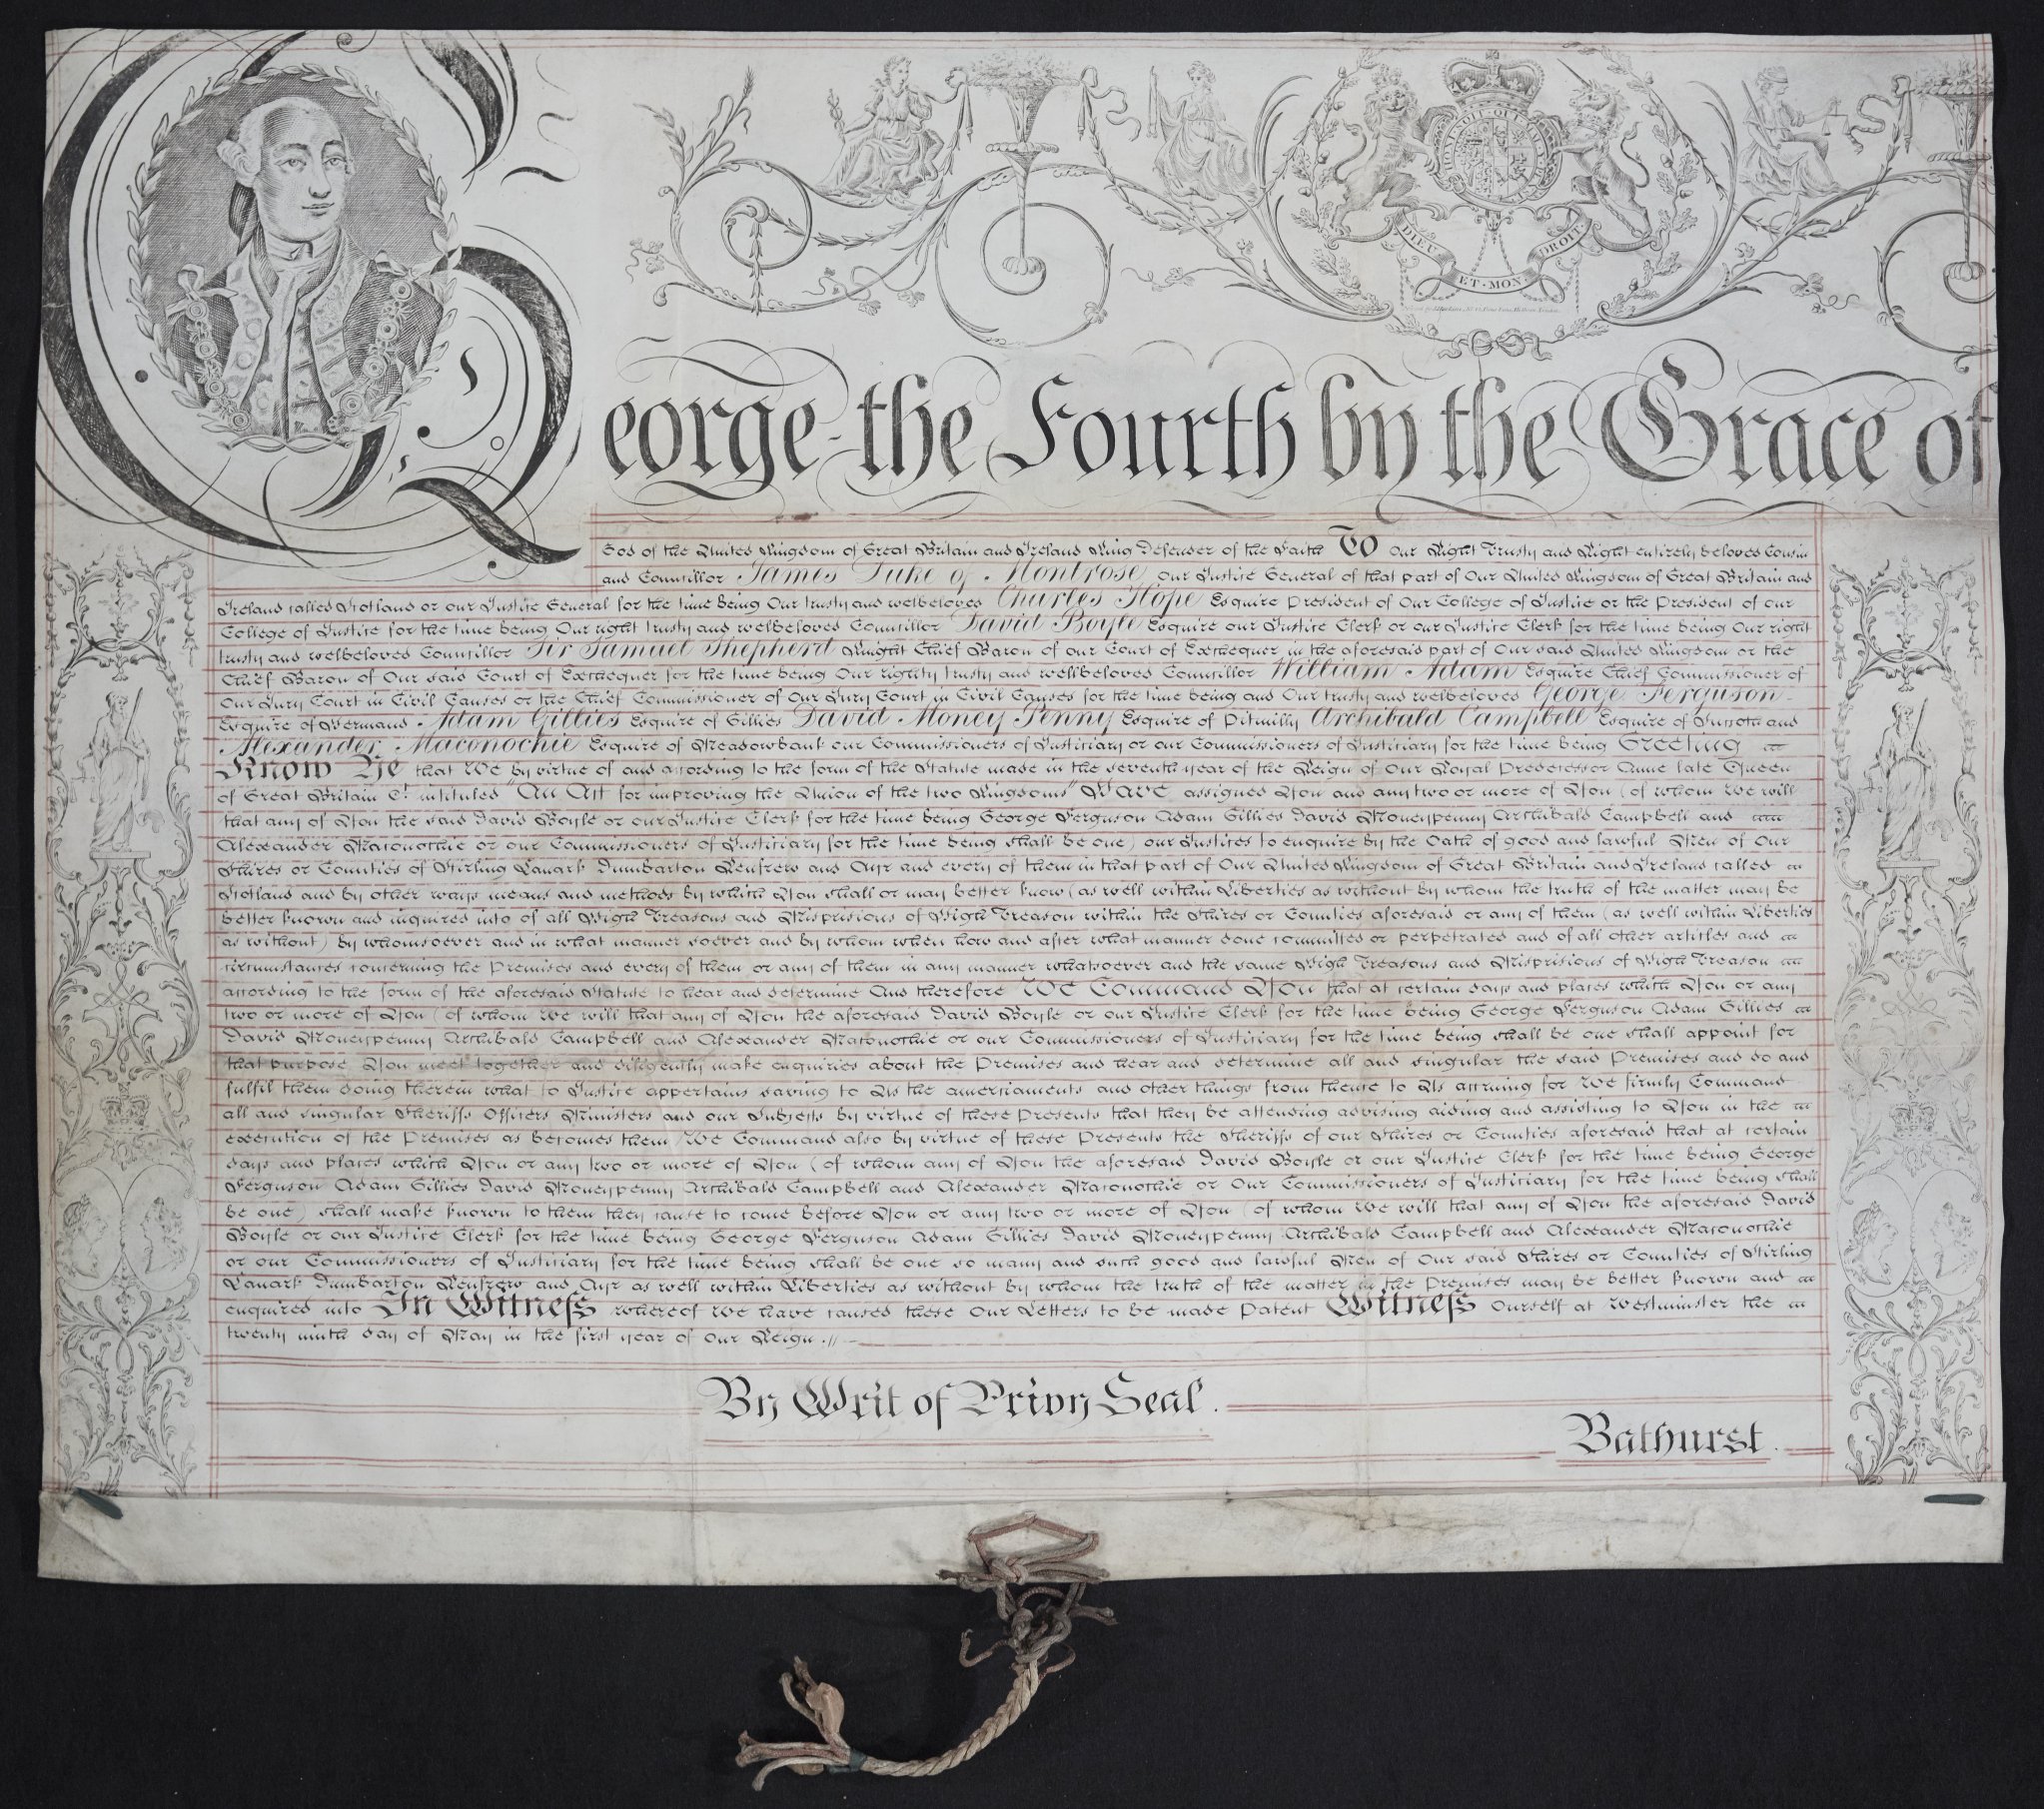 HONI SOIT QUI MAL Y PENSE
DIEU ET MON DROIT
George the Fourth by the Grace of
God of the United Kingdom of Great Britain and Ireland King Defender of the Faith To Our Right Trusty and Right entirely beloved Cousin
and Councillor James Duke of Montrose our Justice General of that part of Our United Kingdom of Great Britain and
Ireland called Scotland or our Justice General for the time being Our trusty and welbeloved Charles Hope Esquire President of Our College of Justice or the President of our
College of Justice for the time being Our right trusty and welbeloved Councillor David Boyle Esquire our Justice Clerk or our Justice Clerk for the time being Our right
trusty and welbeloved Councillor Sir Samuel Shepherd Knight Chief Baron of our Court of Exchequer in the aforesaid part of Our said United Kingdom or the
Chief Baron of Our said Court of Exchequer for the time being Our righty trusty and wellbeloved Councillor William Adam Esquire Chief Commissioner of
Our Jury Court in Civil Causes or the Chief Commissioner of Our Jury Court in Civil Causes for the time being and Our trusty and welbeloved George Ferguson
Esquire of Hermand Adam Gillies Esquire of Gillies David Money Penny Esquire of Pitmilly Archibald Campbell Esquire of Succoth and
Alexander Maconochie Esquire of Meadowbank our Commissioners of Justiciary or our Commissioners of Justiciary for the time being Greeting
Know Ye that We by virtue of and according to the form of the Statute made in the seventh year of the Reign of Our Royal Predecessor Anne late Queen
of Great Britain &c. intituled "An Act for improving the Union of the two Kingdoms" Have assigned You and any two or more of You (of whom We will
that any of You the said David Boyle or our Justice Clerk for the time being George Ferguson Adam Gillies David Moneypenny Archibald Campbell and
Alexander Maconochie or our Commissioners of Justiciary for the time being shall be one) our Justices to enquire by the Oath of good and lawful Men of Our
Shires or Counties of Stirling Lanark Dumbarton Renfrew and Ayr and every of them in that part of Our United Kingdom of Great Britain and Ireland called
Scotland and by other ways means and methods by which You shall or may better know (as well within Liberties as without by whom the truth of the matter may be
better known and inquired into of all High Treasons and Misprisions of High Treason within the Shires or Counties aforesaid or any of them (as well within Liberties
as without) by whomsoever and in what manner soever and by whom when how and after what manner done committed or perpetrated and of all other articles and
circumstances concerning the Premises and every of them or any of them in any manner whatsoever and the same High Treasons and Misprisions of High Treason
according to the form of the aforesaid Statute to hear and determine And therefore We Command You that at certain days and places which You or any
two or more of You (of whom We will that any of You the aforesaid David Boyle or our Justice Clerk for the time being George Ferguson Adam Gillies
David Moneypenny Archibald Campbell and Alexander Maconochie or our Commissioners of Justiciary for the time being shall be one shall appoint for
that purpose You meet together and diligently make enquiries about the Premises and hear and determine all and singular the said Premises and do and
fulfil them doing therein what to Justice appertains saving to Us the amerciaments and other things from thence to Us accruing for We firmly Command
all and singular Sheriffs Officers Ministers and our Subjects by virtue of these Presents that they be attending advising aiding and assisting to You in the
execution of the Premises as becomes them We Command also by virtue of these Presents the Sheriffs of our Shires or Counties aforesaid that at certain
days and places which You or any two or more of You (of whom any of You the aforesaid David Boyle or our Justice Clerk for the time being George
Ferguson Adam Gillies David Moneypenny Archibald Campbell and Alexander Maconochie or Our Commissioners of Justiciary for the time being shall
be one) shall make known to them they cause to come before You or any two or more of You (of whom We will that any of You the aforesaid David
Boyle or our Justice Clerk for the time being George Ferguson Adam Gillies David Moneypenny Archibald Campbell and Alexander Maconochie
or our Commissioners of Justiciary for the time being shall be one so many and such good and lawful Men of Our said Shires or Counties of Stirling
Lanark Dumbarton Renfrew and Ayr as well within Liberties as without by whom the truth of the matter in the Premises may be better known and
enquired into In Witness whereof We have caused these Our Letters to be made Patent Witness Ourself at Westminster the
twenty ninth day of May in the first year of Our Reign.
By Writ of Privy Seal.
Bathurst.